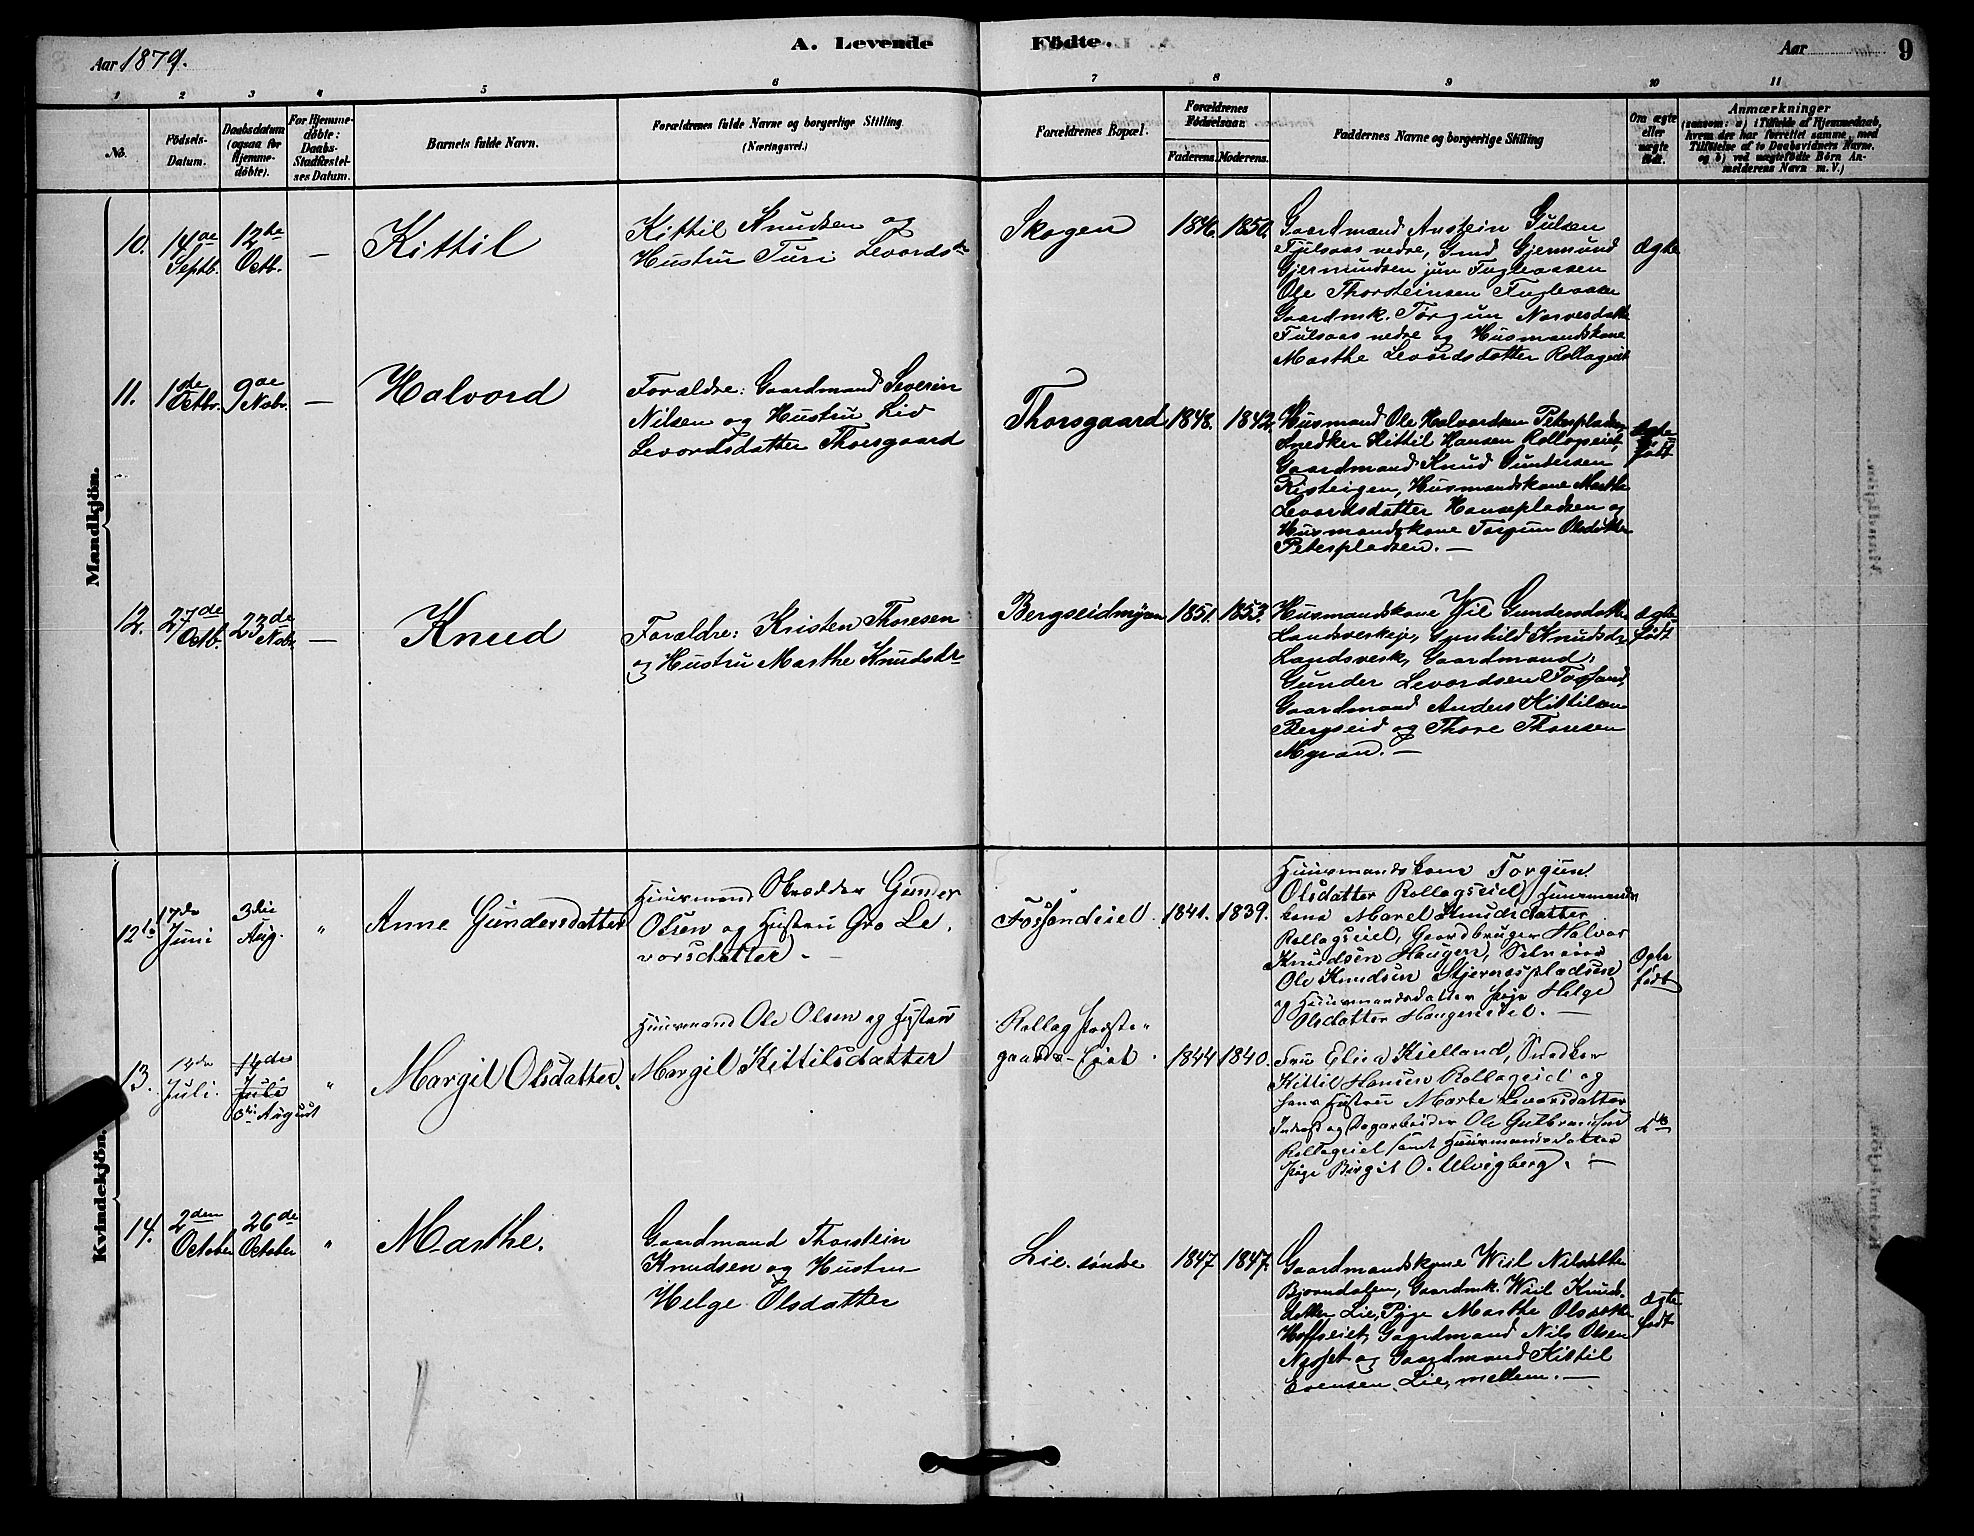 Aar 1879.
A. Levende Födte.
Aar
9
1 2 3 4 5 6 7 8 9 10 11
No.
Födsels-
Datum.
Daabsdatum
(ogsaa for
Hjemme-
döbte).
For Hjemme-
döbte:
Daabs-
Stadfæstel-
ses Datum.
Barnets fulde Navn.
Forældrenes fulde Navne og borgerlige Stilling
(Næringsvei.)
Forældrenes Bopæl.
Forældrenes
Födselsaar.
Faderens. Moderens.
Faddernes Navne og borgerlige Stilling
Om ægte
eller
uægte
födt.
Anmærkninger
(saasom: a) i Tilfælde af Hjemmedaab,
hvem der har forrettet samme, med
Tilföielse af to Daabsvidners Navne.
og b) ved uægtefödte Börn An-
melderens Navn m. V.)
Mandkjön.
10.
14de
Septb.
12te
Octb.
—
Kittil
Kittil Knudsen og
Hustru Turi Levordsdtr
Skogen
1846.
1850.
Gaardmand Anstein Gulsen
Fulsaas nedre, Gmd Gjermund
Gjermundsen jun Fugleaasen
Ole Thorsteinsen Fugleaasen
Gaardmk. Torgun Narvesdatter
Fulsaas nedre og Husmandskone
Marthe Levordsdatter Rollageiet
ægte
11.
1ste
Octbr.
9de
Nobr.
—
Halvord
Forældre: Gaardmand Severin
Nilsen og Hustru Liv
Levordsdatter Thorsgaard
Thorsgaard
1848.
1842.
Husmand Ole Halvordsen Petersplads
Snedker Kittil Hansen Rollagseiet,
Gaardmand Knud Gundersen
Risteigen, Husmandskone Marthe
Levordsdatter Hansepladsen og
Husmandskone Torgun Olsdatter
Peterspladsen. —
ægte
født
12.
27de
Octb.
23de
Nobr.
—
Knud
Forældre: Kristen Thoresen
og Hustru Marthe Knudsdtr
Bergseidmyran
1851.
1853.
Husmandskone Vil Gundersdatter
Landsverkeje, Gunhild Knudsdr
Landsverk, Gaardmand
Gunder Levordsen Fossand,
Gaardmand Anders Kittilsen
Bergseid og Thore Thoresen
Myran. —
ægte
født
Kvindekjön.
12b
17de
Juni
3die
Aug.
"
Anne Gundersdatter
Huusmand Gunder
Olsen og Hustru Gro Le-
vorsdatter. —
Fossandeiet.
1841.
1839.
Huusmandskone Torgun
Olsdatter Rollagseiet, Huusmands-
kone Marel Knudsdatter
Rollagseiet, Gaardbruger Halvor
Knudsen Haugen,
Ole Knudsen Stjernespladsen
og Huusmandsdatter Pige Helge
Olsdatter Haugeneiet. —
Ægte
født
13.
Juli.
14de
Juli
3die August
"
Margit Olsdatter.
Huusmand Ole Olsen og Hustru
Margit Kittilsdatter
Rollag Præste-
gaards-Eiet.
1844
1840.
Fru Elisa Kielland, Snedker
Kittil Hansen Rollageiet og
hans Hustru Marte Levorsdatter
Inderst og Dagarbeider Ole Gulbrandsen
Rollageiet samt Huusmandsdatter
Pige Birgit O. Ulvigberg. —
dto
14.
2den
October
26de
October
"
Marthe.
Gaardmand Thorstein
Knudsen og Hustru
Helge Olsdatter
Lie søndre
1847
1847.
Gaardmandskone Wiil Nilsdatter
Bjørndalen, Gaardmk. Wiil Knuds-
datter Lie, Pige Marthe Olsdatter
Hoffseiet, Gaardmand Nils Olsen
Næsset og Gaardmand Kittil
Evensen Lie, mellem. —
ægte
født